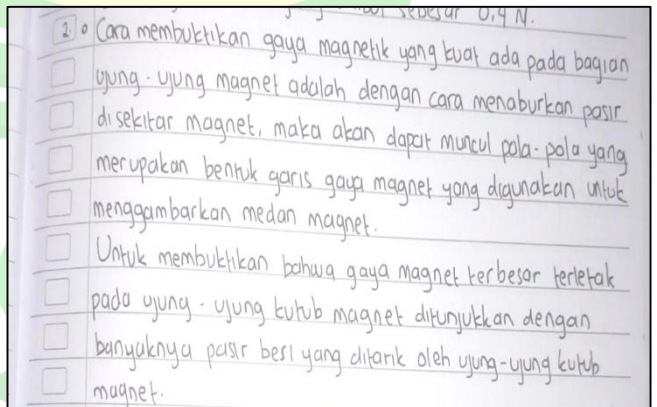 sebesar 0,4 N.
2. Cara membuktikan gaya magnetik yang kuat ada pada bagian
ujung-ujung magnet adalah dengan cara menaburkan pasir
disekitar magnet, maka akan dapat muncul pola-pola yang
merupakan bentuk garis gaya magnet yang digunakan untuk
menggambarkan medan magnet.
Untuk membuktikan bahwa gaya magnet terbesar terletak
pada ujung-ujung kutub magnet ditunjukkan dengan
banyaknya pasir besi yang ditarik oleh ujung-ujung kutub
magnet.